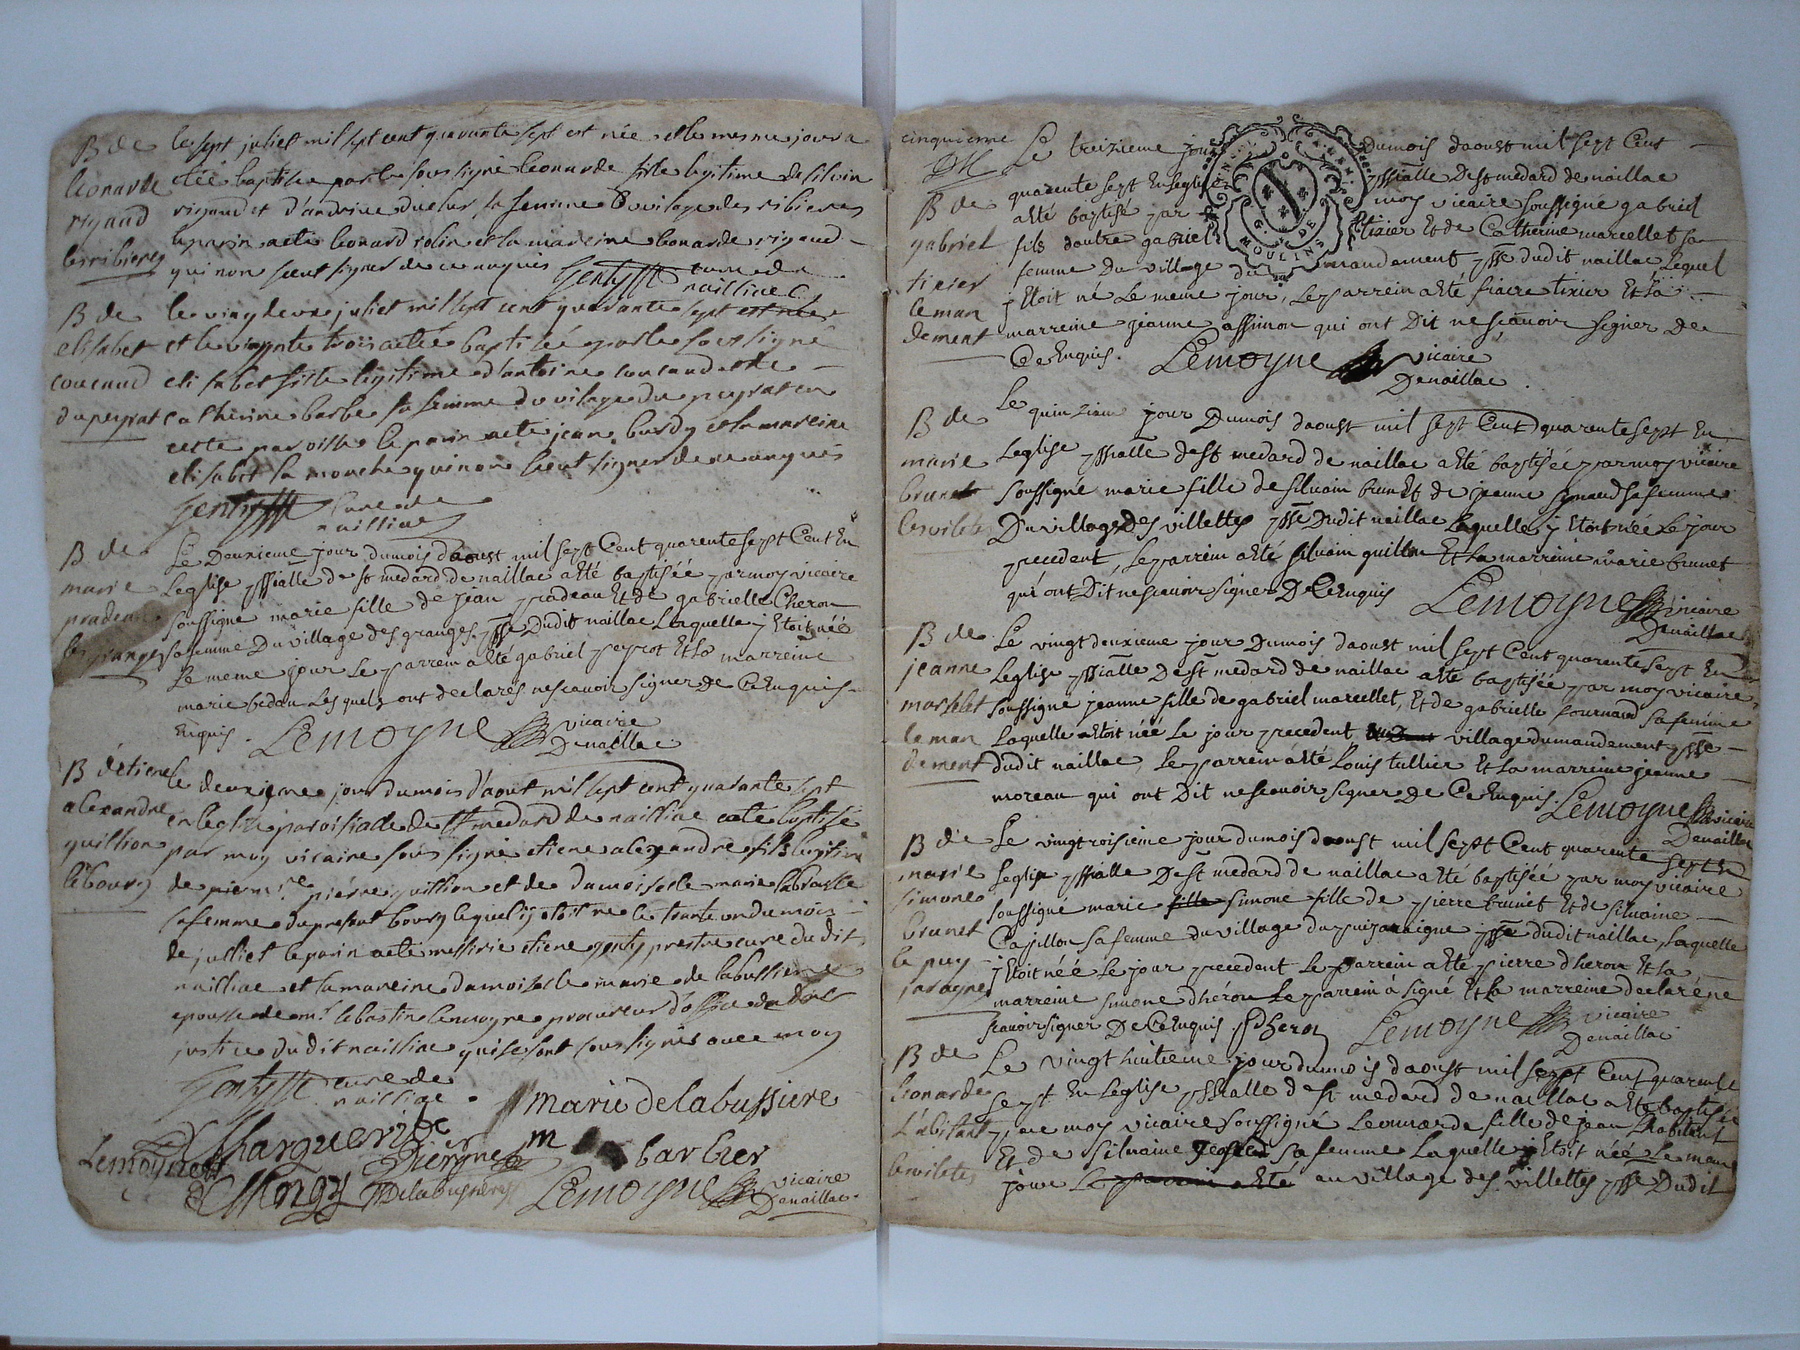 B de
leonarde
rigaud
les ribieres
le sept juliet mil sept cent quarante sept est née et le mesme jour a
étée baptisée par le sous signé leonarde fille legitime de silvin
rigaud et d'andrive duclur sa femme du vilage des ribieres
le parin a eté leonard colin et la mareine leonarde rigaud
qui n'on sceut signer de ce enquis Gentyfft curé de
nailliac
B de
elisabet
coucaud
du peyrat
le vingdeux juliet mil sept cent quarante sept est née
et le vingnte trois a eté baptisée par le sous signé
elisabet fille legitime d'antoine coucaud et de
catherine barbe sa femme du vilage du peyrat en
cette paroisse le parin a eté jean burdy et la mareine
elisabet la mouche qui n'on sceut signer de ce enquis
Gentyfft curé de
nailliac
B de
marie
pradeau
les granges
Le Deuxieme jour du mois d'aoust mil sept Cent quarente sept Cent En
Leglise pssialle de st medard de naillac a Eté baptiséé par moy vicaire
soussigné marie fille de jean padeau Et de gabrielle Cheron
sa femme Du village des granges psse Dudit naillac Laquelle y Etoit néé
Le meme jour Le parrein a Eté gabriel peyrot Et La marreine
marie bedau Les quels ont declarés ne scavoir signer de Ce Enquis
Enquis. Lemoyne vicaire
Denaillac
B d'étiene
alexandre
quillion
le bourg
le deuxieme jour du mois d'aout mil sept cent quarante sept
en leglise paroisialle de st medard de nailliac a eté baptisé
par moy vicaire sous signé etiene alexandre fils legitime
de piere quillion et de damoiselle marie labrousse
sa femme du present bourg lequel y etoit né le trante un du mois
de julliet le parin a eté messirie etiene genty prestre curé du dit
nailliac et la mareine damoiselle marie de la bussiere
epousse de mr sebastin lemoyne procureur d'office de la
justice du dit nailliac qui se sont sous signés avec moy
Gentyfft curé de
nailliac
marie delabussiere
Marguerite
barbier
Lemoyne
Lemoyne vicaire
Denaillac
cinquieme
Le treizieme jour du mois daoust mil sept Cent
quarente sept En leglise pssialle De st medard de naillac
a Eté baptisé par moy vicaire soussigné gabriel
fils dautre gabriel tixier Et de Catherine marcellet sa
femme Du village du mandement psse dudit naillac Lequel
y Etoit né Le meme jour, Le parrein a Eté fiacre tixier Et La
marreine jeanne assimon qui ont Dit ne scavoir signer De
Ce Enquis. Lemoyne vicaire
Denaillac
MOULINS
B de
gabriel
tixier
le man
dement
B de
marie
brunet
les viletes
Le quinzieme jour Du mois daoust mil sept Cent quarente sept En
Leglise pssialle de st medard de naillac a Eté baptiséé par moy vicaire
soussigné marie fille de silvain brun Et de jeanne simaud sa femme
Du village des villettes psse Dudit naillac Laquelle y Etoit néé Le jour
precedent, Le parrein a Eté silvain guillon Et La marreine marie brunet
qui ont Dit ne scavoir signer De Ce Enquis Lemoyne vicaire
Denaillac
B de
jeanne
marselet
le man
dement
Le vingt deuxieme jour Du mois daoust mil sept Cent quarente sept En
Leglise pssialle De st medard de naillac a Eté baptiséé par moy vicaire
soussigné jeanne fille de gabriel marcellet, Et de gabrielle fournaud sa femme
Laquelle etoit néé Le jour precedent village du mandement psse
dudit naillac, Le parrein a Eté Louis tullier Et La marreine jeanne
moreau qui ont Dit ne scavoir signer De Ce Enquis. Lemoyne vicaire
Denaillac
B de
marie
simone
brunet
le puy
jaragne
Le vingt troisieme jour du mois daoust mil sept Cent quarente sept En
Leglise pssialle De st medard de naillac a Eté baptiséé par moy vicaire
soussigné marie fille simone fille de pierre brunet Et de silvaine
Capillon sa femme du village du puijaraigne psse dudit naillac, Laquelle
y Etoit néé Le jour precedent Le parrein a Eté pierre dheron Et La
marreine simone dhérou Le parrein a signé Et La marreine declaré ne
scavoir signer De Ce Enquis P dheron Lemoyne vicaire
Denaillac
B de
leonarde
L'abitant
les viletes
Le vingt huitieme jour du mois daoust mil sept Cent quarente
sept En Leglise pssialle de st medard de naillac a Eté baptisée
par moy vicaire soussigné Leonarde fille de jean Lhabitant
Et de Silvaine sa femme Laquelle y Etoit néé Le meme
jour Le parrein a Eté au village des villettes psse Dudit